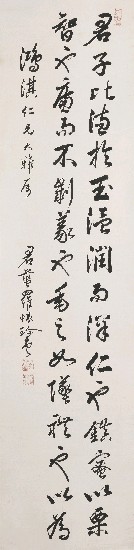 君子比德於玉溫潤而澤仁也縝密以栗
智也廉而不劌義也垂之如墜禮也以為
鴻淇仁兄大雅屬
君